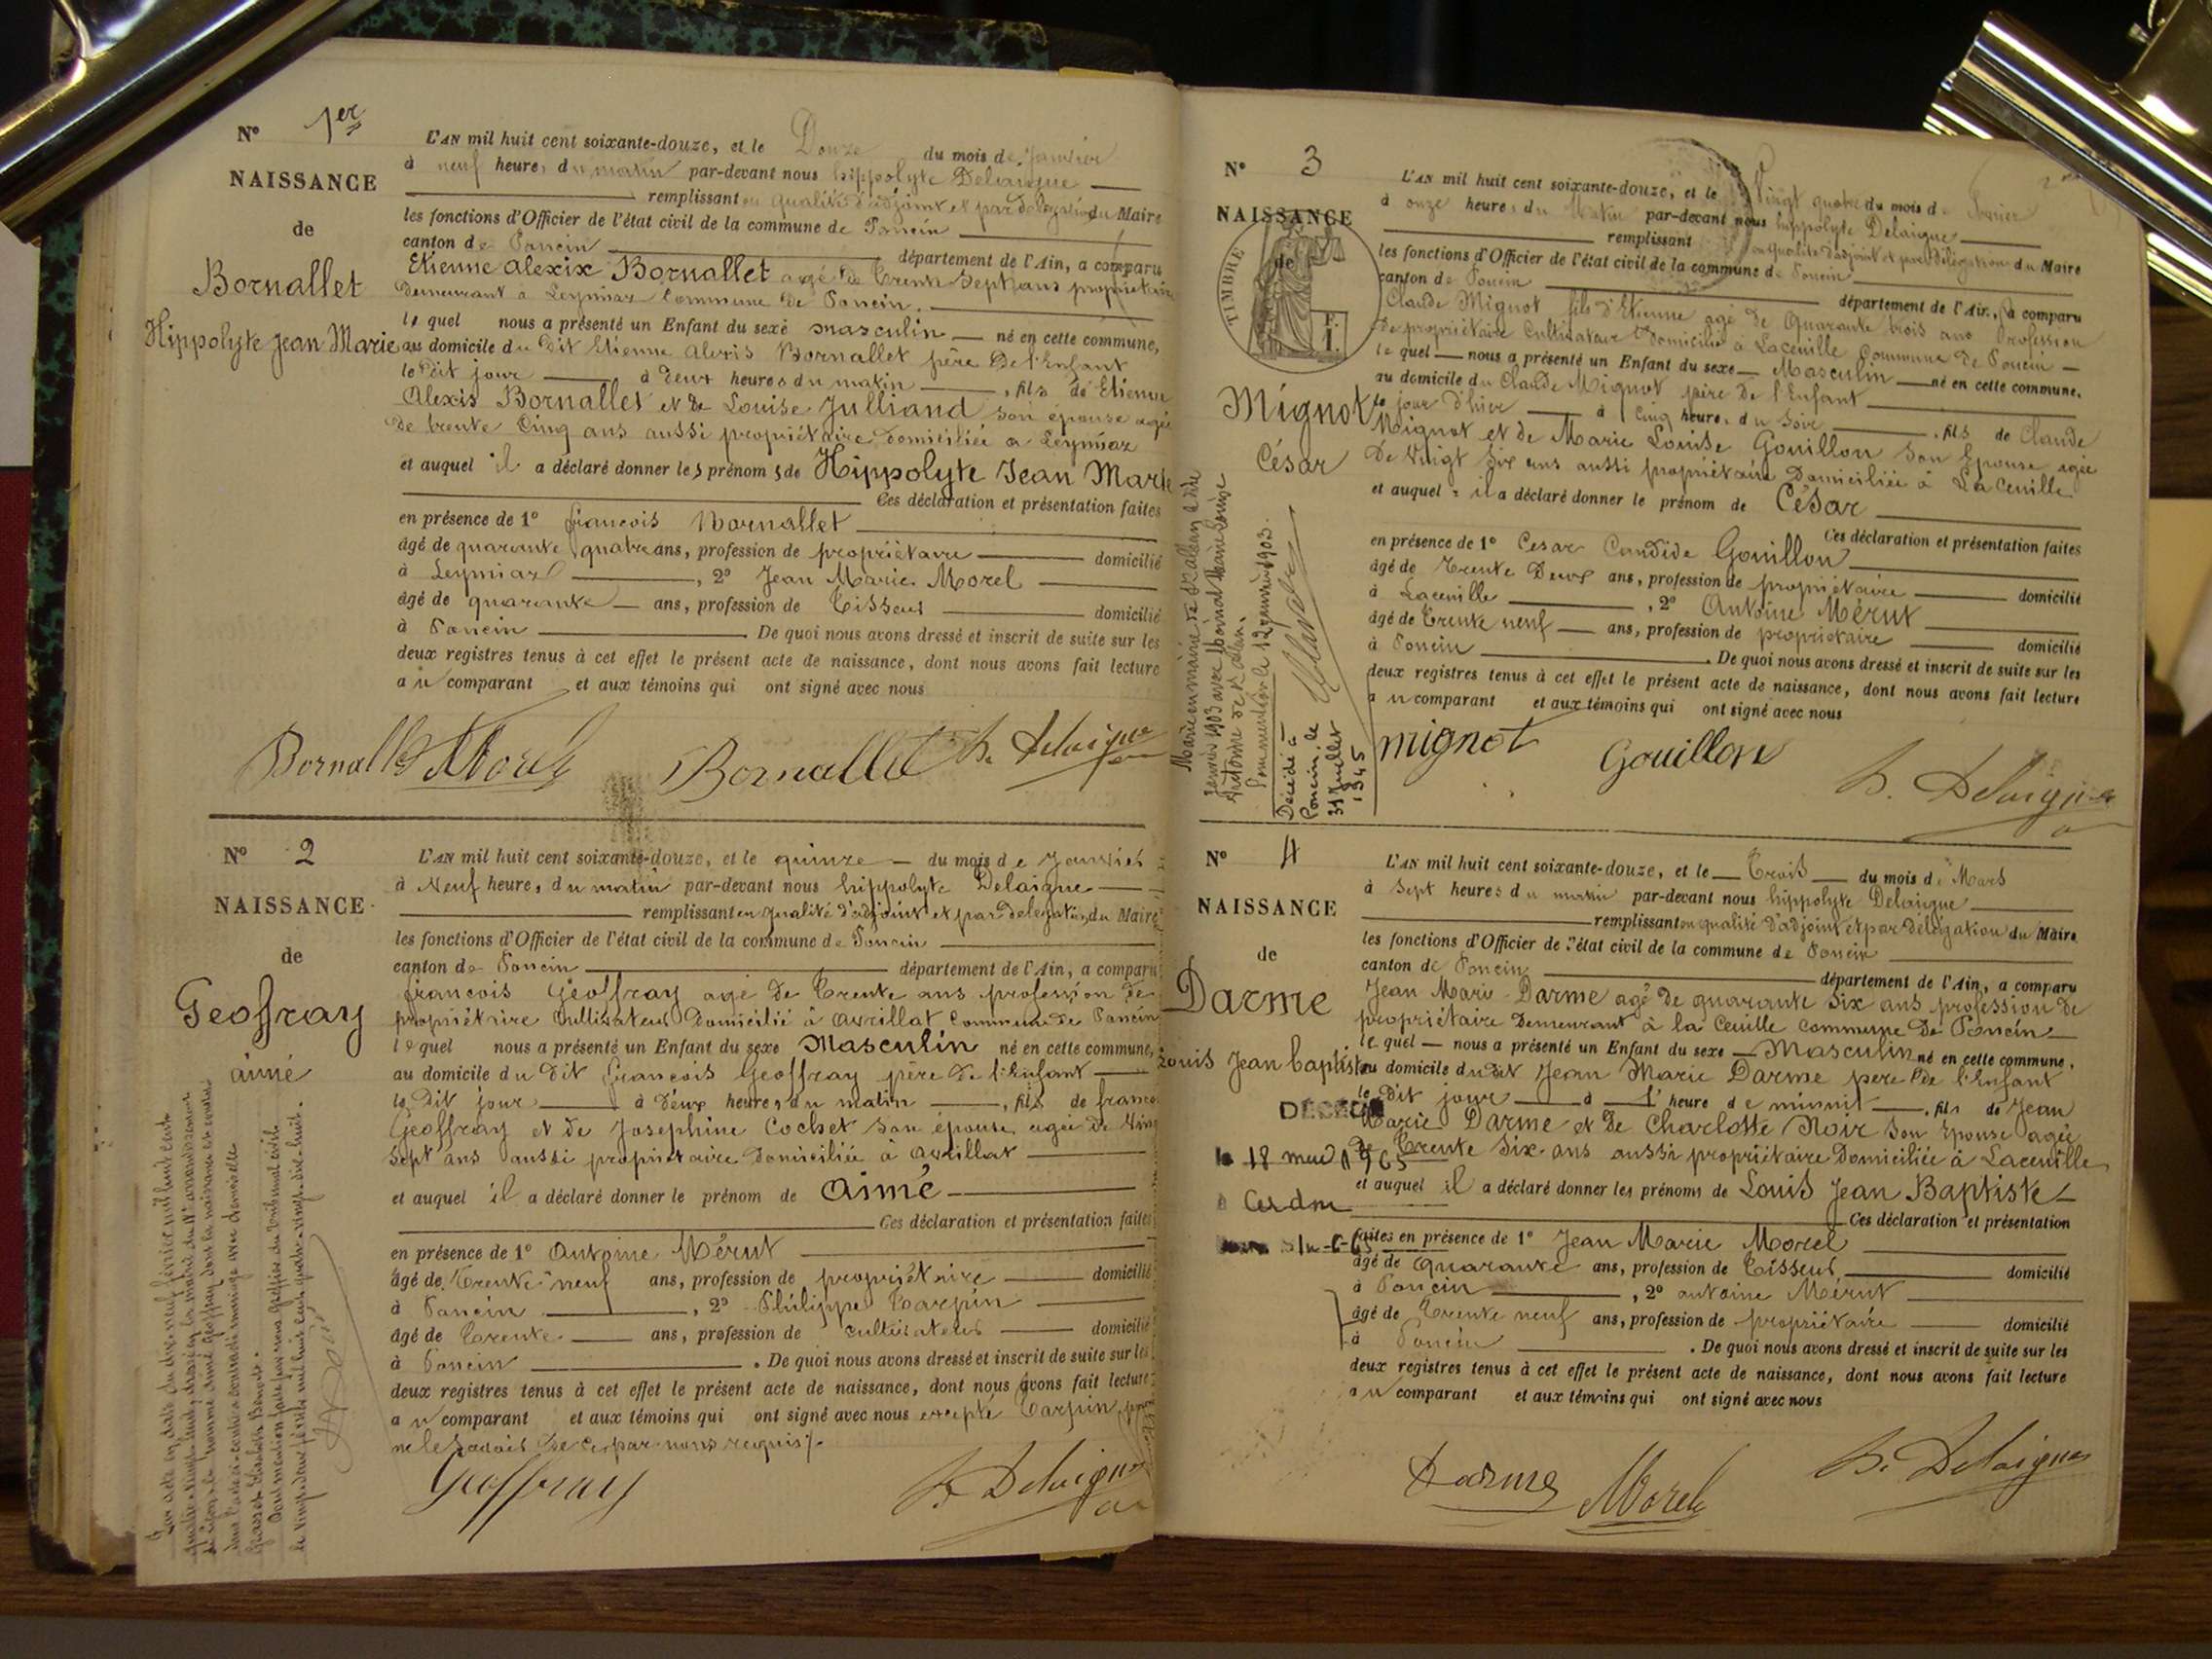 N° 1er
NAISSANCE
de
Bornallet
Hippolyte Jean Marie
L'AN mil huit cent soixante-douze, et le Douze du mois de Janvier
à neuf heures du matin par-devant nous hippolyte Delaigue
remplissant en qualité d'adjoint et par délégation du Maire
les fonctions d'Officier de l'état civil de la commune de Poncin
canton de Poncin département de l'Ain, a comparu
Etienne alexix Bornallet agé de Trente Sept ans propriétaire
demeurant à Leymiaz Commune de Poncin.
lequel nous a présenté un Enfant du sexe masculin né en cette commune,
au domicile du Dit Etienne Alexis Bornallet père De l'Enfant
le Dit jour à Deux heures du matin, fils de Etienne
Alexis Bornallet et de Louise Julliand son épouse agée
De trente Cinq ans aussi propriétaire domiciliée à Leymiaz
et auquel il a déclaré donner les prénoms de Hippolyte Jean Marie
Ces déclaration et présentation faites
en présence de 1° françois Bornallet
âgé de quarante quatre ans, profession de propriétaire domicilié
à Leymiaz, 2° Jean Marie Morel
âgé de quarante ans, profession de Tisseur domicilié
à Poncin De quoi nous avons dressé et inscrit de suite sur les
deux registres tenus à cet effet le présent acte de naissance, dont nous avons fait lecture
au comparant et aux témoins qui ont signé avec nous
Bornallet Morel Bornallet h. Delaigue
N° 2
NAISSANCE
de
Geoffray
aimé
L'AN mil huit cent soixante-douze, et le quinze du mois de Janvier
à Neuf heures du matin par-devant nous hippolyte Delaigue
remplissant en qualité d'adjoint et par délégation du Maire
les fonctions d'Officier de l'état civil de la commune de Poncin
canton de Poncin département de l'Ain, a comparu
françois Geoffray agé de Trente ans profession de
propriétaire Cultivateur Domicilié à avrillat Commune de Poncin
lequel nous a présenté un Enfant du sexe Masculin né en cette commune,
au domicile du Dit françois Geoffray père de l'Enfant
le Dit jour à Deux heures du matin, fils de franço
Geoffray et de Josephine Cochet son épouse agée de Ving
Sept ans aussi propriétaire domiciliée à avrillat
et auquel il a déclaré donner le prénom de Aimé
Ces déclaration et présentation faites
en présence de 1° Antoine Mérut
âgé de Trente neuf ans, profession de propriétaire domicilié
à Poncin, 2° Philippe Carpin
âgé de Trente ans, profession de cultivateur domicilié
à Poncin. De quoi nous avons dressé et inscrit de suite sur les
deux registres tenus à cet effet le présent acte de naissance, dont nous avons fait lecture
au comparant et aux témoins qui ont signé avec nous excepté Carpin
ne le savoir de ce par nous requis
Geoffray h. Delaigue
N° 3
NAISSANCE
de
TIMBRE
1 F.
Mignot
César
L'AN mil huit cent soixante-douze, et le Vingt quatre du mois de fevrier
à onze heures du Matin par-devant nous hippolyte Delaigue
remplissant en qualité d'adjoint et par délégation du Maire
les fonctions d'Officier de l'état civil de la commune de Poncin
canton de Poncin département de l'Ain, a comparu
Claude Mignot fils d'Etienne agé de Quarante trois ans Profession
De propriétaire Cultivateur Domicilié à Laceuille Commune De Poncin
lequel nous a présenté un Enfant du sexe Masculin né en cette commune,
au domicile du Claude Mignot père de l'Enfant
le jour d'hier à Cinq heures du Soir, fils de Claude
Mignot et de Marie Louise Gouillon Son Epouse agée
De Vingt Six ans aussi propriétaire Domiciliée à La Ceuille
et auquel il a déclaré donner le prénom de César
Ces déclaration et présentation faites
en présence de 1° Cesar Candide Gouillon
âgé de Trente Deux ans, profession de propriétaire domicilié
à Laceuille, 2° Antoine Mérut
âgé de Trente neuf ans, profession de propriétaire domicilié
à Poncin. De quoi nous avons dressé et inscrit de suite sur les
deux registres tenus à cet effet le présent acte de naissance, dont nous avons fait lecture
au comparant et aux témoins qui ont signé avec nous
Décédé à
Poncin le
31 Juillet
1945
mignot Gouillon h. Delaigue
N° 4
NAISSANCE
de
Darme
Louis Jean baptiste
DÉCÉDÉ
le 18
à Cerdon
L'AN mil huit cent soixante-douze, et le Trois du mois de Mars
à Sept heures du matin par-devant nous hippolyte Delaigue
remplissant en qualité d'adjoint et par délégation du Maire
les fonctions d'Officier de l'état civil de la commune de Poncin
canton de Poncin département de l'Ain, a comparu
Jean Marie Darme agé de quarante Six ans profession de
propriétaire Demeurant à la Ceuille commune De Poncin
lequel nous a présenté un Enfant du sexe Masculin né en cette commune,
au domicile du dit Jean Marie Darme pere de l'Enfant
le Dit jour à l' heure de minuit, fils de Jean
Marie Darme et De Charlotte Noir Son Epouse agée
de Trente Six ans aussi propriétaire Domiciliée à Laceuille
et auquel il a déclaré donner les prénoms de Louis Jean Baptiste
Ces déclaration et présentation
faites en présence de 1° Jean Marie Morel
âgé de Quarante ans, profession de Tisseur domicilié
à Poncin, 2° antoine Mérut
âgé de Trente neuf ans, profession de propriétaire domicilié
à Poncin. De quoi nous avons dressé et inscrit de suite sur les
deux registres tenus à cet effet le présent acte de naissance, dont nous avons fait lecture
au comparant et aux témoins qui ont signé avec nous
Darme Morel h. Delaigue